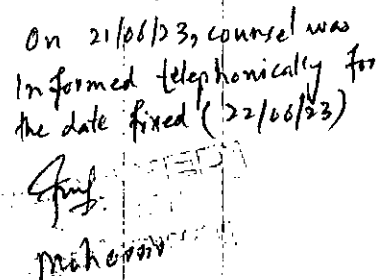 On 21/06/23, counsel was
Informed telephonically for
the date fixed (22/06/23)